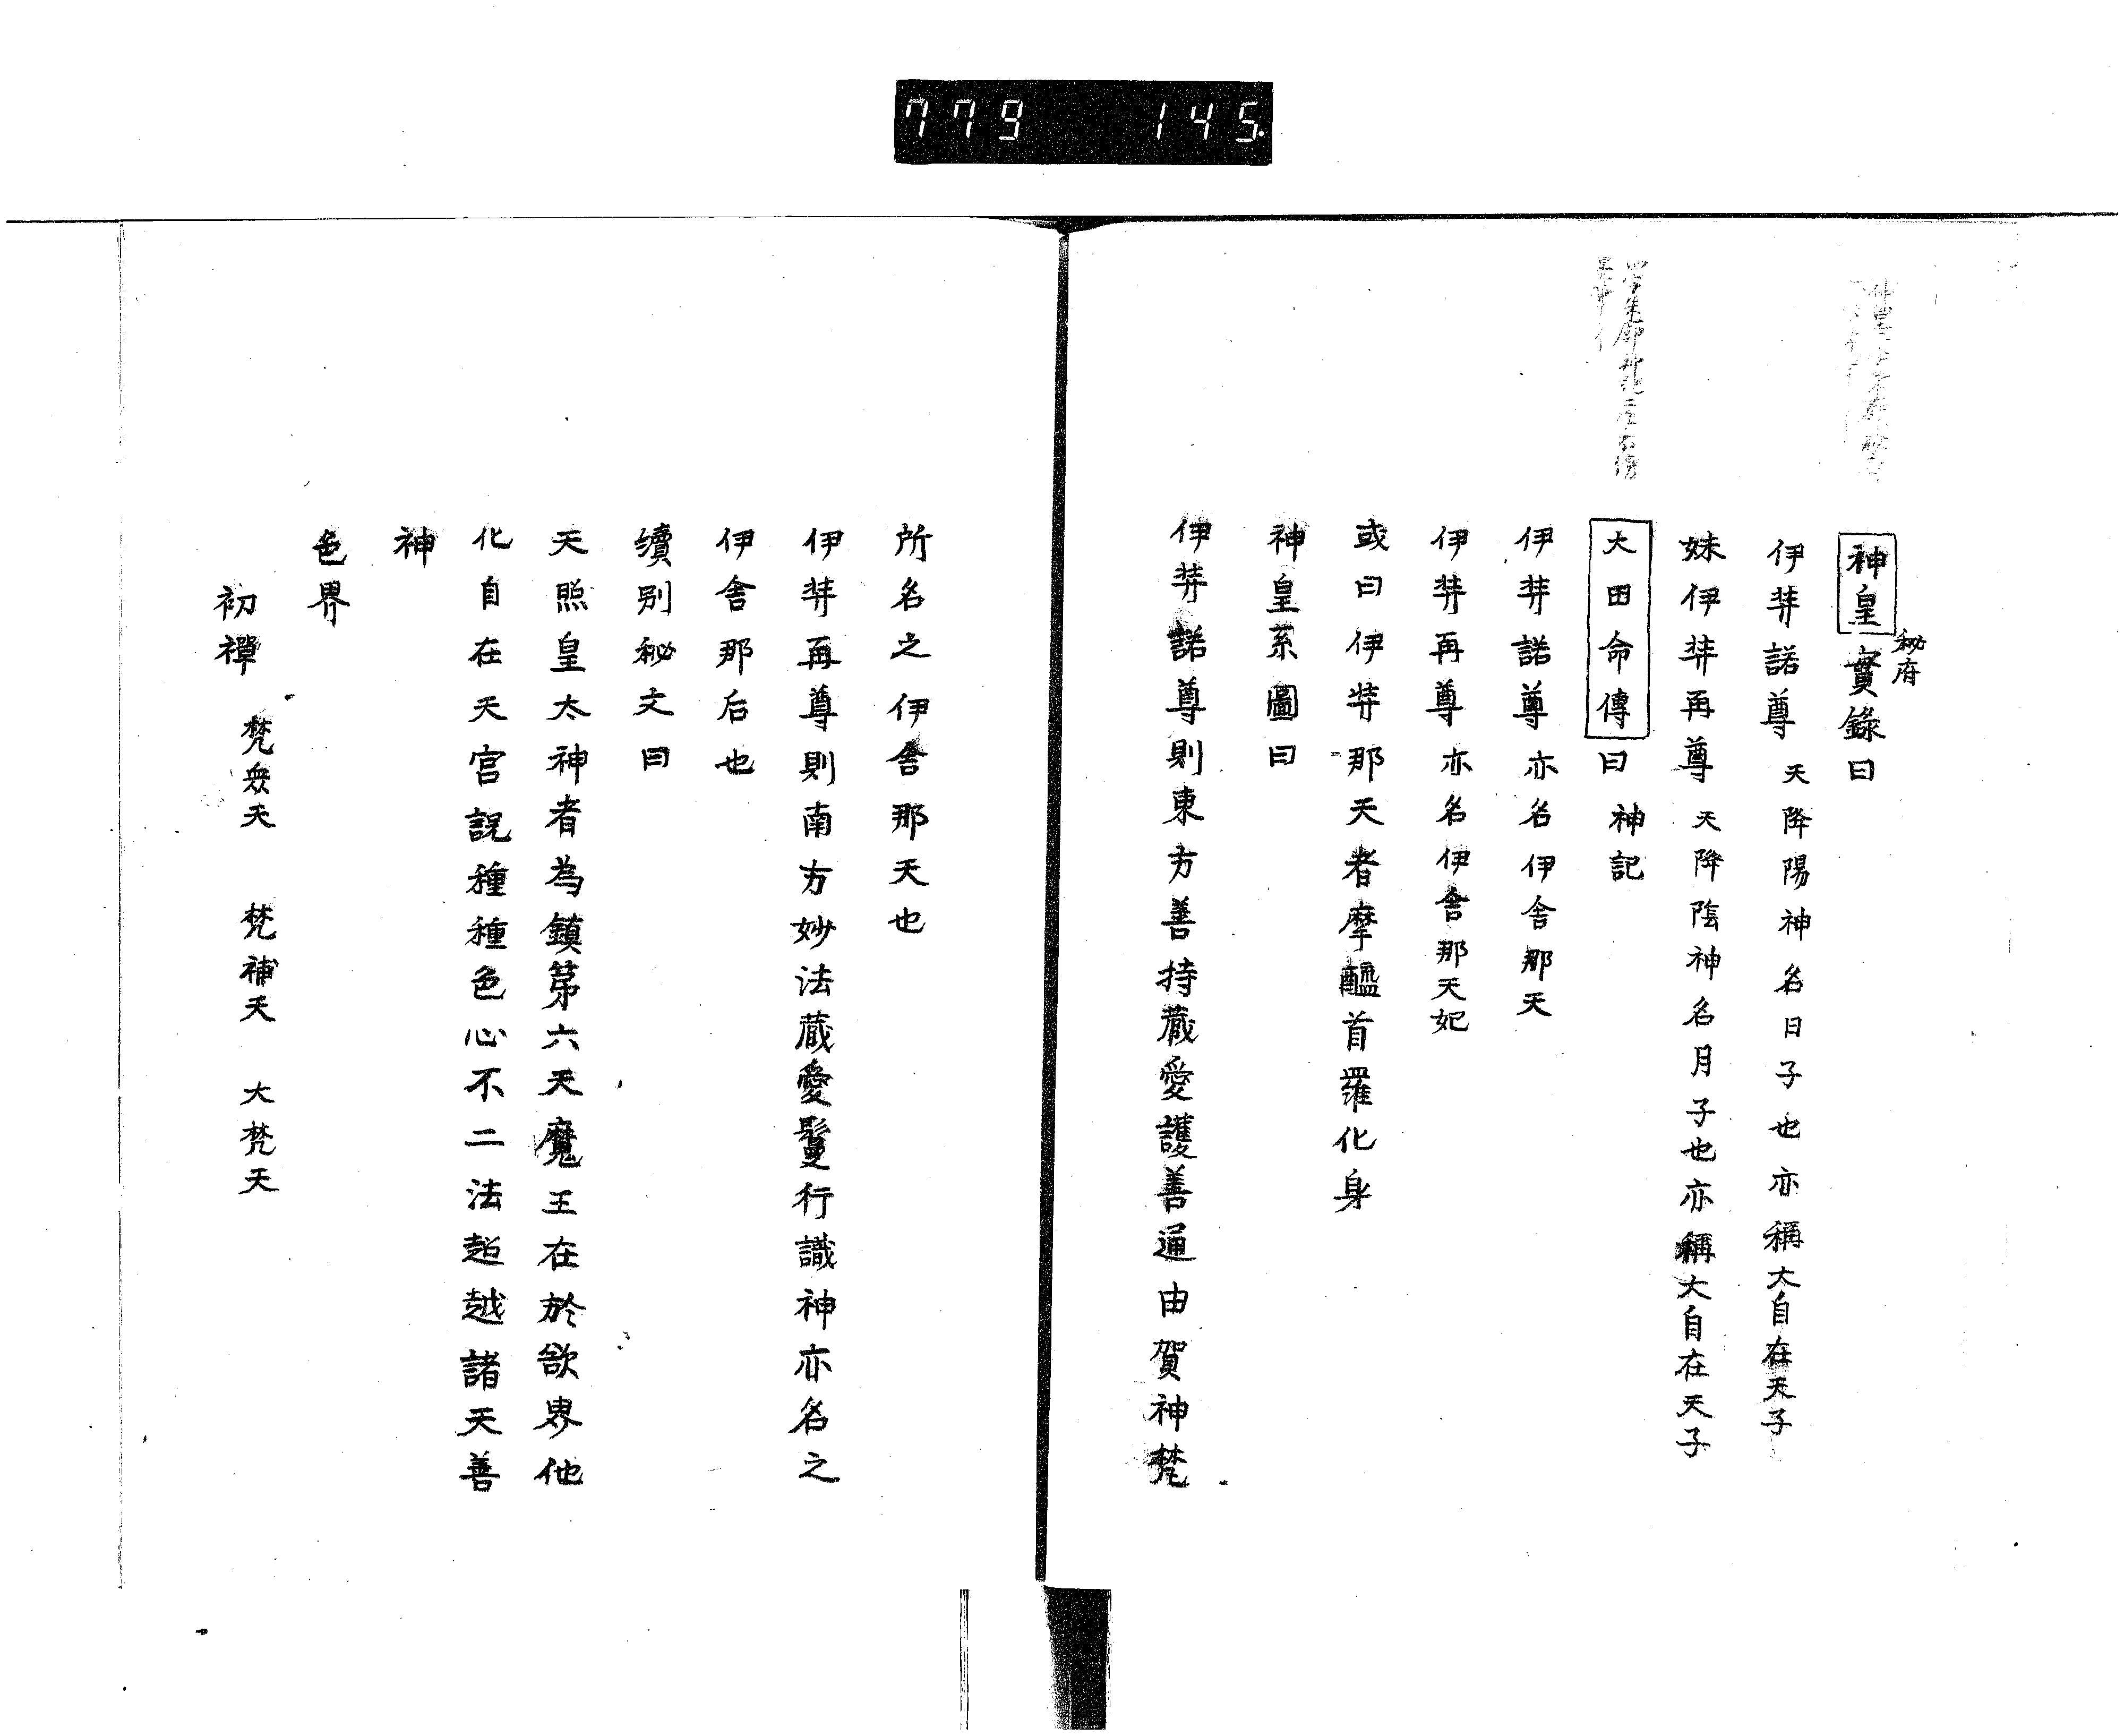 779 145.
神皇實錄曰
秘府
伊弉諾尊 天降陽神名日子也亦稱大自在天子
妹伊弉再尊 天降陰神名月子也亦稱大自在天子
大田命傳曰 神記
伊弉諾尊亦名伊舎那天
伊弉再尊亦名伊舎那天妃
或曰伊弉那天者摩醯首羅化身
神皇系圖曰
伊弉諾尊則東方善持蔵愛護善通由賀神梵
所名之伊舎那天也
伊弉再尊則南方妙法蔵愛鬘行識神亦名之
伊舎那后也
續別秘文曰
天照皇太神者為鎮第六天魔王在於欲界他
化自在天宮説種種色心不二法超越諸天善
神
色界
初禅 梵衆天 梵補天 大梵天